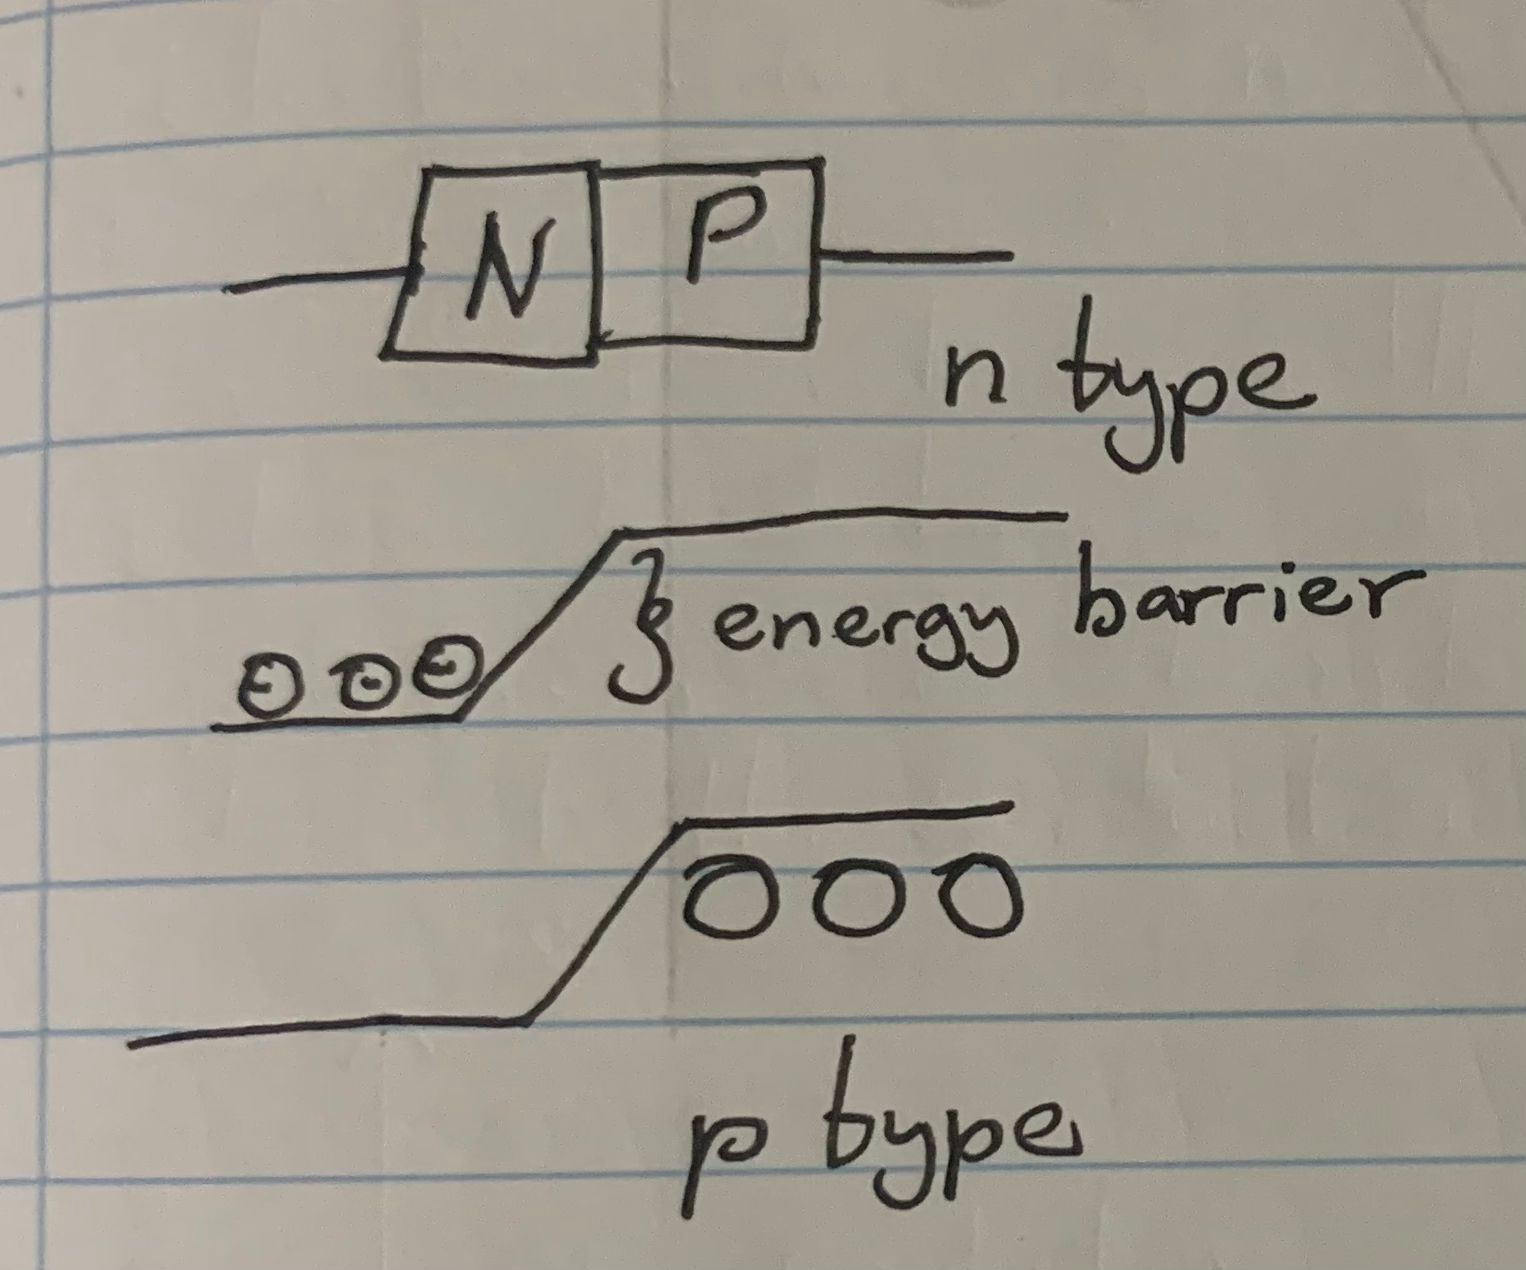 N P
n type
energy barrier
p type